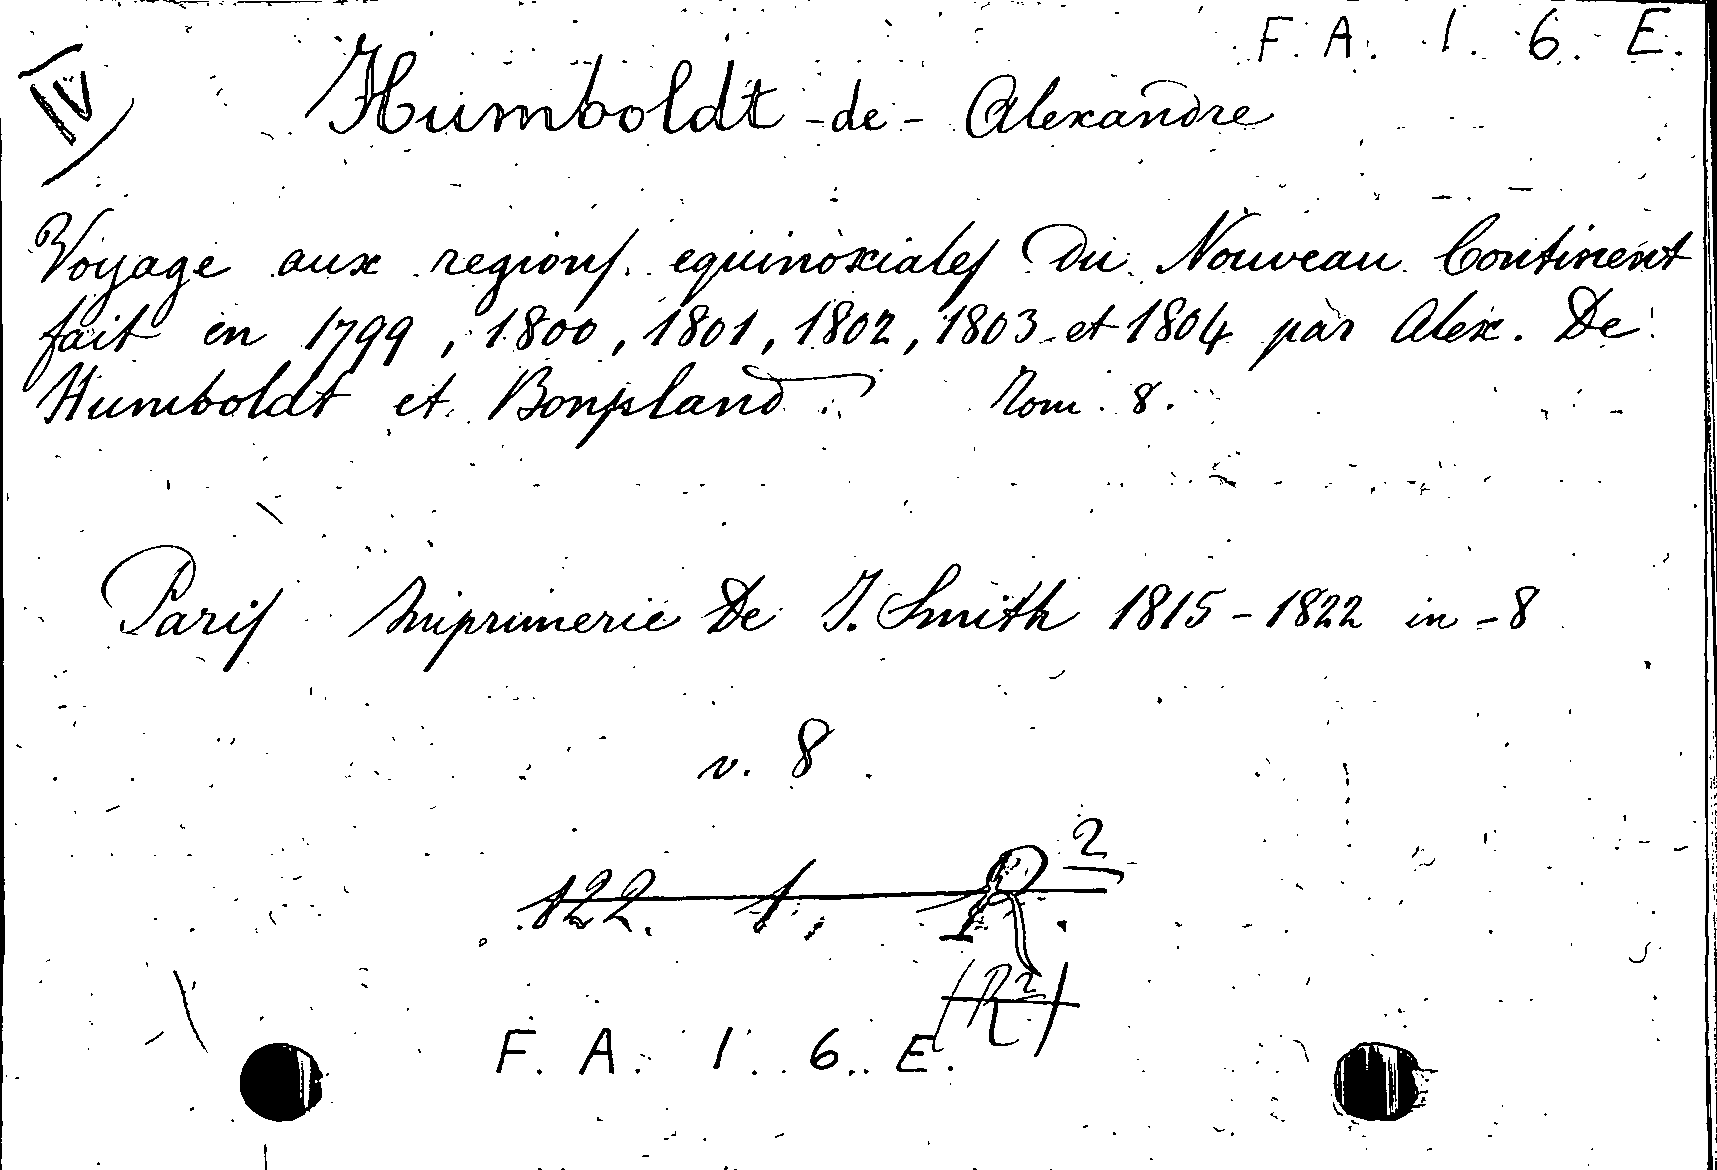 F. A. 1. 6. E.
IV
Humboldt - de - Alexandre
Voyage aux regions equinoxiales du Nouveau Continent
fait en 1799, 1800, 1801, 1802, 1803 et 1804 par Alex. De
Humboldt et Bonpland Tom. 8.
Paris Imprimerie De J. Smith 1815-1822 in-8
v. 8
122. 1. R 2
(R2)
F. A. 1. 6. E.